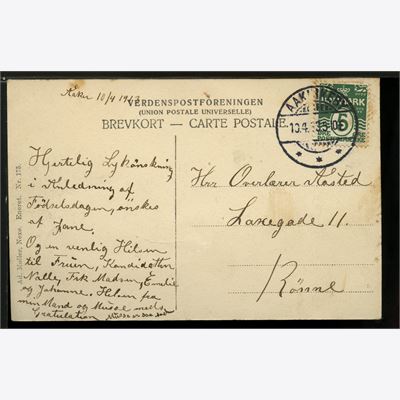 Aaker 10/4 1913
VERDENSPOSTFORENINGEN
(UNION POSTALE UNIVERSELLE)
BREVKORT — CARTE POSTALE
AAKI
10.4.
5
Hjertelig Lykønskning
i Anledning af
Fødselsdagen, ønskes
af Jane.
Og en venlig Hilsen
til Fruen, Kandidaten
Nalle, Frk Madsen, Emilie
og Johanne. Hilsen fra
min Mand og Musse med
Gratulation
Hrr Overlærer Aasted
Laxegade 11.
Rønne
Adj. Møller, Nexø. Eneret. Nr. 175.